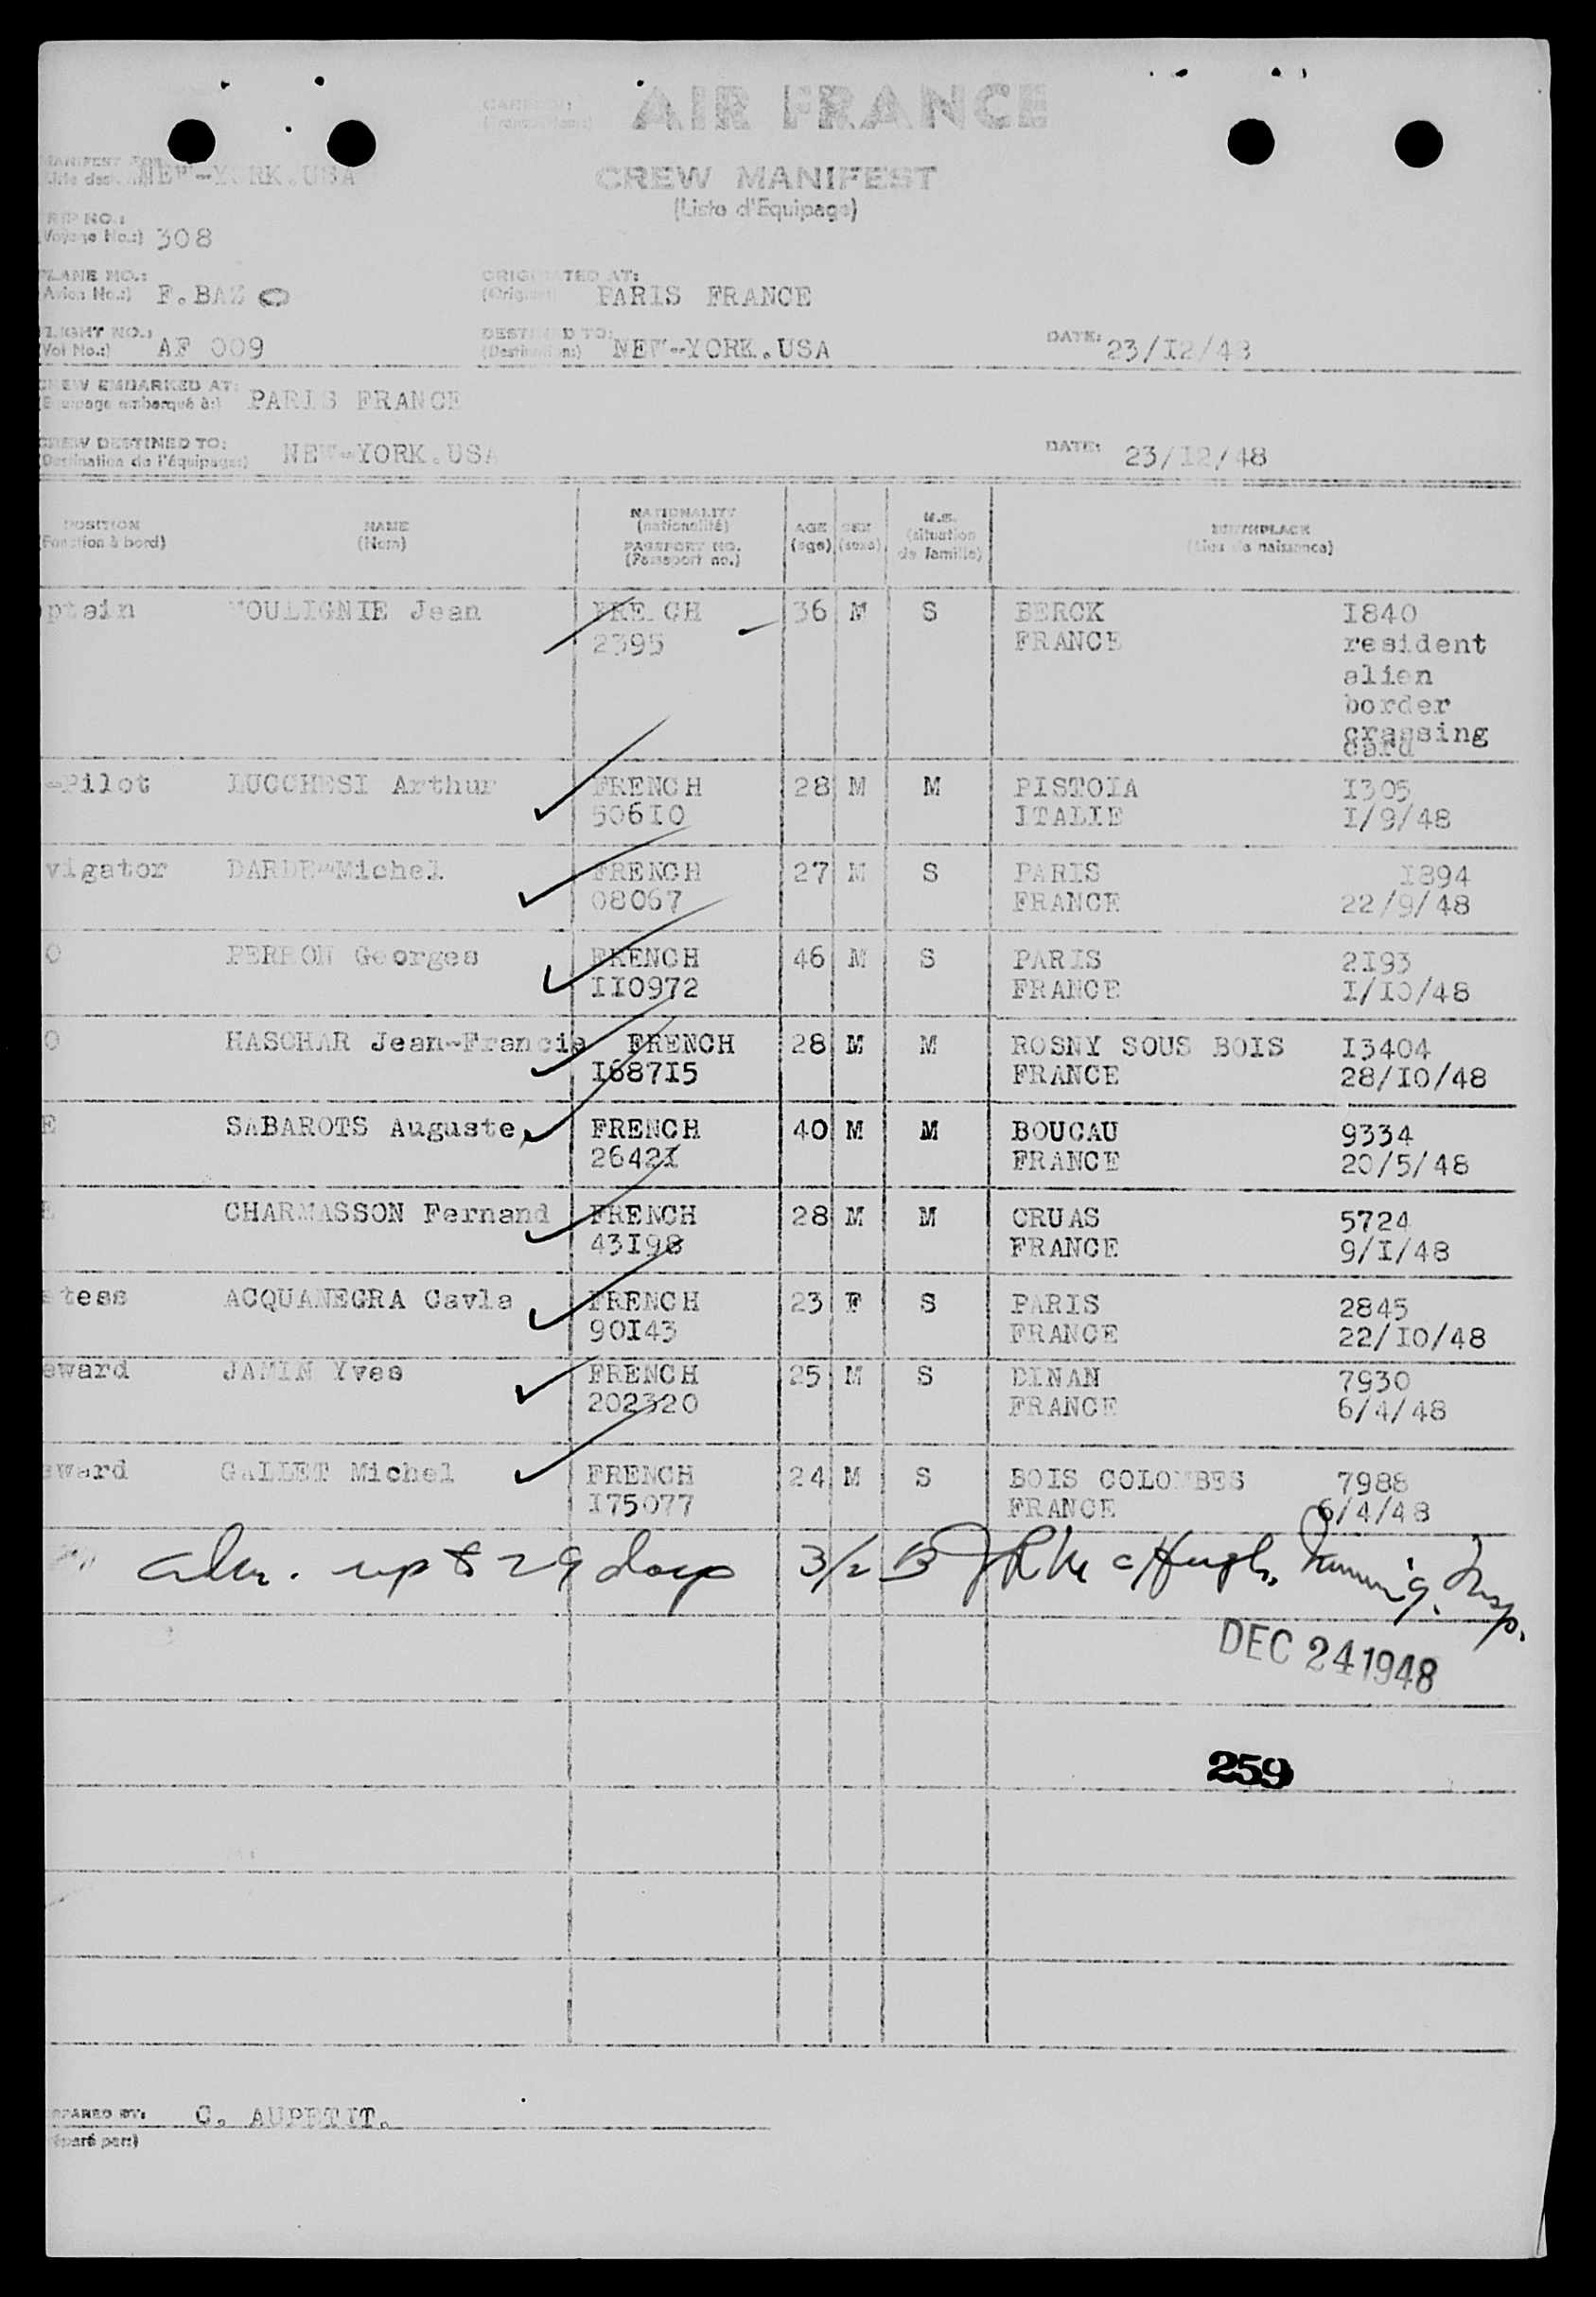 AIR FRANCE
MANIFEST FOR
NEW-YORK.USA
CREW MANIFEST
(Liste d'Equipage)
RIP NO.:
(Voyage No.:) 308
PLANE NO.: ORIGINATED AT:
(Avion No.:) F.BAZ O PARIS FRANCE
FLIGHT NO.: DESTINED TO: DATE:
(Vol No.:) AF 009 NEW-YORK.USA 23/I2/48
CREW EMBARKED AT:
(Equipage embarqué à:) PARIS FRANCE
CREW DESTINED TO: DATE:
(Destination de l'équipage:) NEW-YORK.USA 23/I2/48
POSITION NAME NATIONALITY AGE SEX M.S. BIRTHPLACE
(Fonction à bord) (Nom) (nationalité) (age) (sexe) (situation de famille) (Lieu de naissance)
PASSPORT NO.
(Passeport no.)
ptain OULIGNIE Jean FRE CH 36 M S BERCK I840
2395 FRANCE resident
alien
border
crassing
card
-Pilot LUCCHESI Arthur FRENCH 28 M M PISTOIA I305
506I0 ITALIE I/9/48
vigator DARDE-Michel FRENCH 27 M S PARIS I894
08067 FRANCE 22/9/48
O PERRON Georges FRENCH 46 M S PARIS 2I93
II0972 FRANCE I/I0/48
O HASCHAR Jean-Francis FRENCH 28 M M ROSNY SOUS BOIS I3404
I687I5 FRANCE 28/I0/48
E SABAROTS Auguste, FRENCH 40 M M BOUCAU 9334
2642I FRANCE 20/5/48
E CHARMASSON Fernand FRENCH 28 M M CRUAS 5724
43I98 FRANCE 9/I/48
stess ACQUANEGRA Cavla FRENCH 23 F S PARIS 2845
90I43 FRANCE 22/I0/48
eward JAMIN Yves FRENCH 25 M S DINAN 7930
202320 FRANCE 6/4/48
eward GALLET Michel FRENCH 24 M S BOIS COLOMBES 7988
I75077 FRANCE 6/4/48
adm. up to 29 days 3/2 B J R McHugh, Immig. Insp.
DEC 24 1948
259
EPARED BY: C. AUPETIT.
éparé par:)